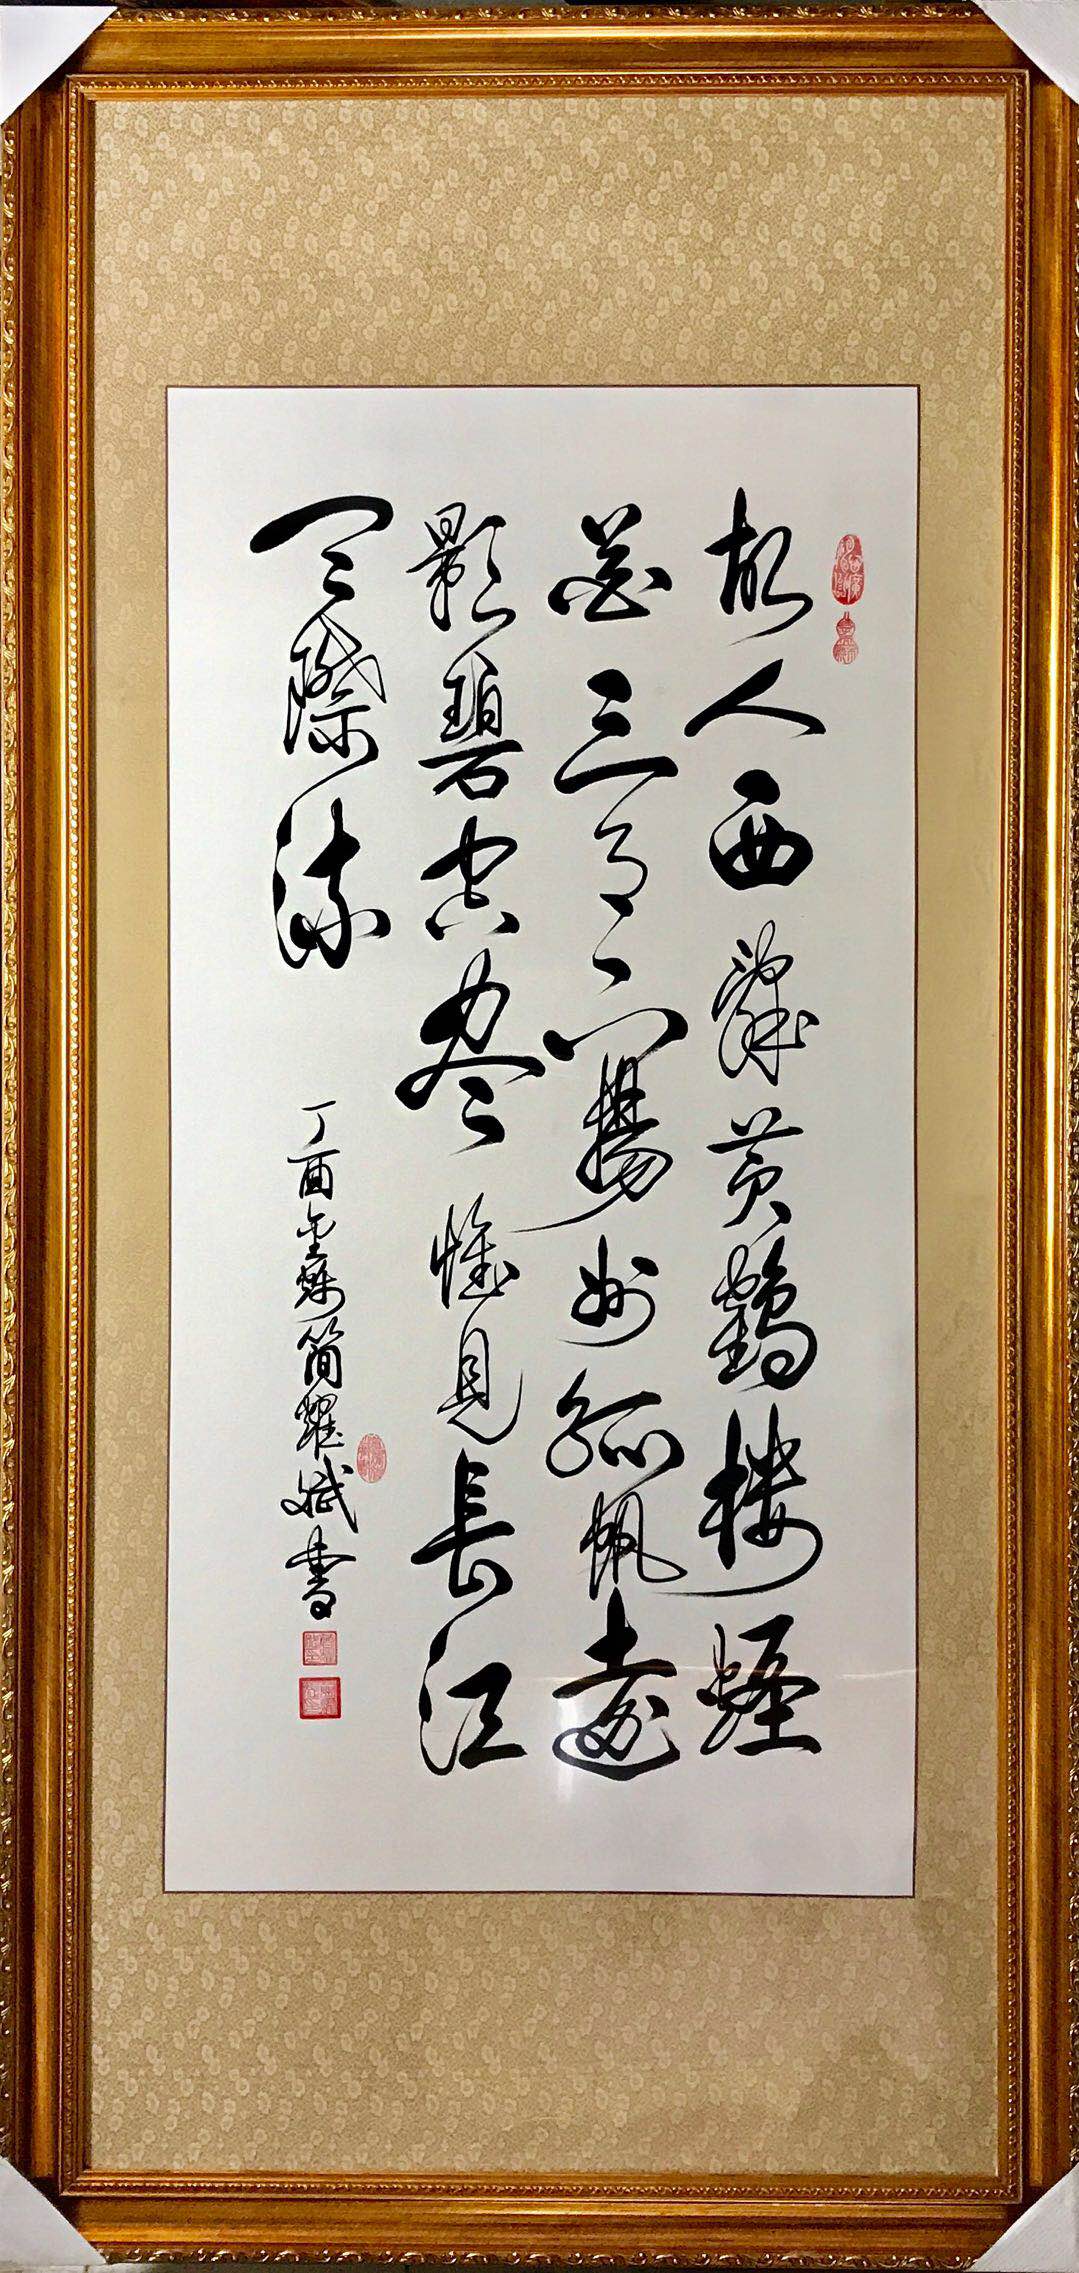 故人西辭黃鶴樓煙
花三月下揚州孤帆遠
影碧空盡惟見長江
天際流
丁酉金秋簡耀斌書